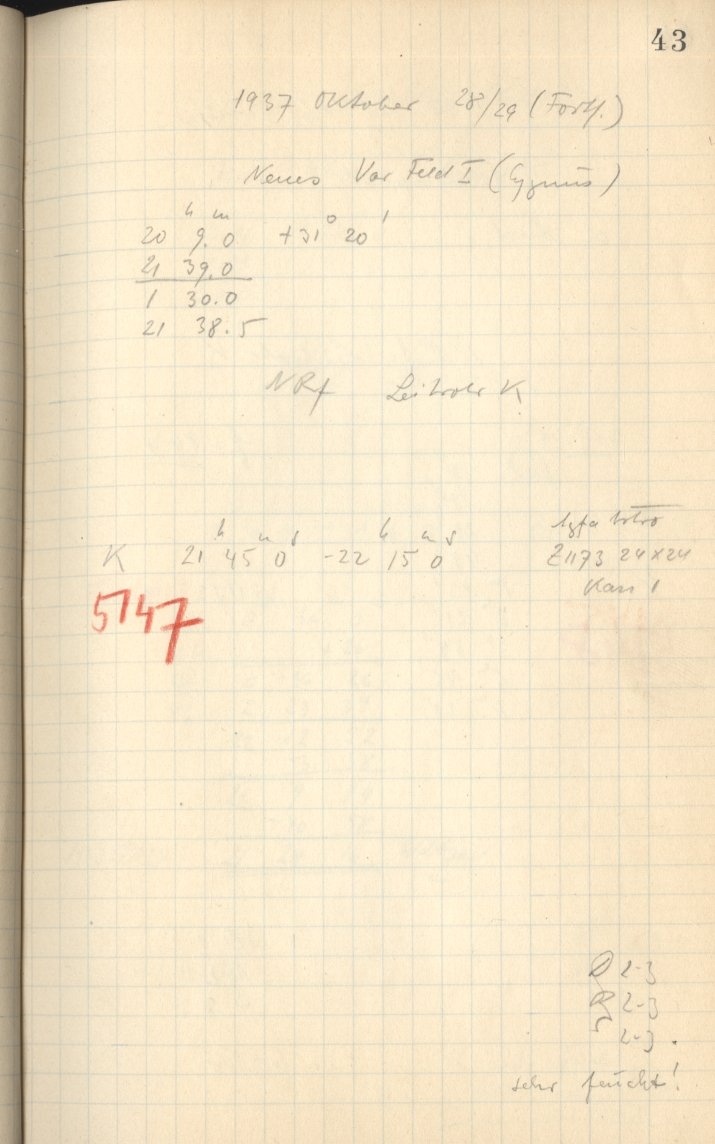 43
1937 Oktober 28/29 (Forts.)
Neues Var Feld I (Cygnus)
h m ° '
20 9.0 +31 20
21 39.0
1 30.0
21 38.5
NRf Leitrohr K
h m s h m s
K 21 45 0 -22 15 0
Agfa Astro
Z1173 24x24
Kass 1
5147
2-3
2-3
2-3.
sehr feucht!